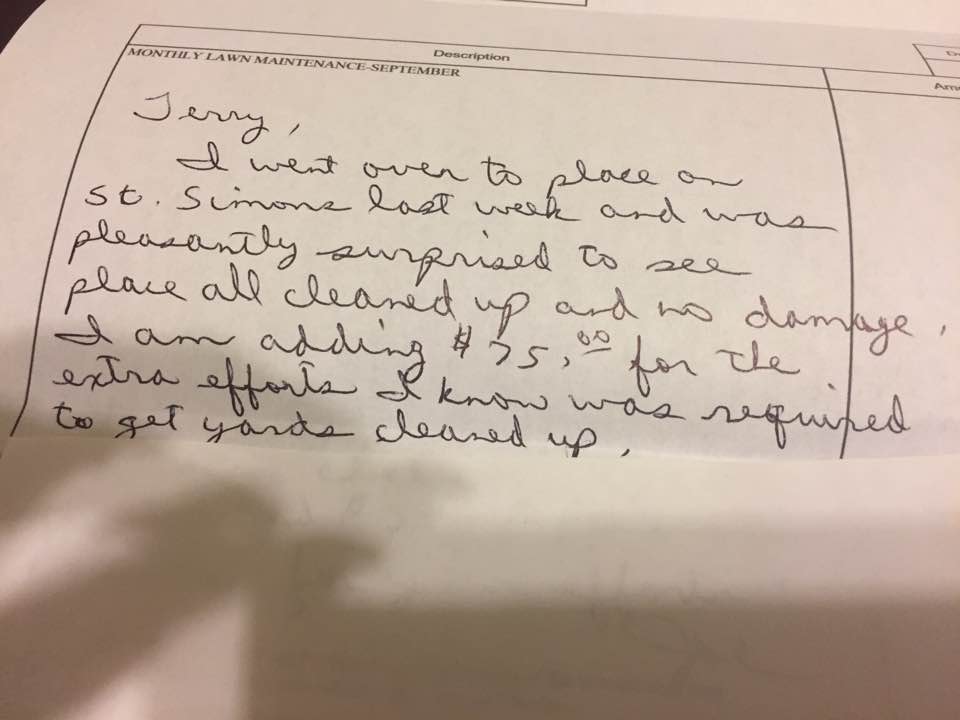 Description
MONTHLY LAWN MAINTENANCE-SEPTEMBER
Jerry,
I went over to place on
St. Simons last week and was
pleasantly surprised to see
place all cleaned up and no damage.
I am adding $75.00 for the
extra efforts I know was required
to get yards cleaned up.